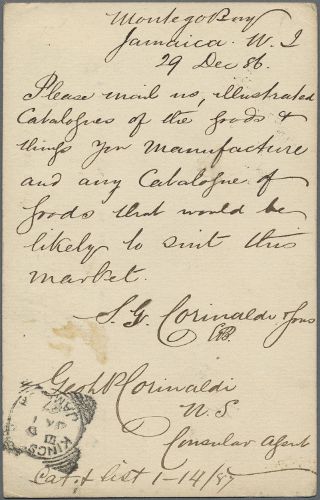 Montego Bay
Jamaica. W. I
29 Dec 86.
Please mail us, illustrated
Catalogues of the goods &
things you manufacture
and any Catalogue of
goods that would be
likely to suit this
market.
S. G. Corinaldi & Sons
Corinaldi
U. S.
Consular Agent
Cat. & list 1-14/87
KINGS
JAM
87